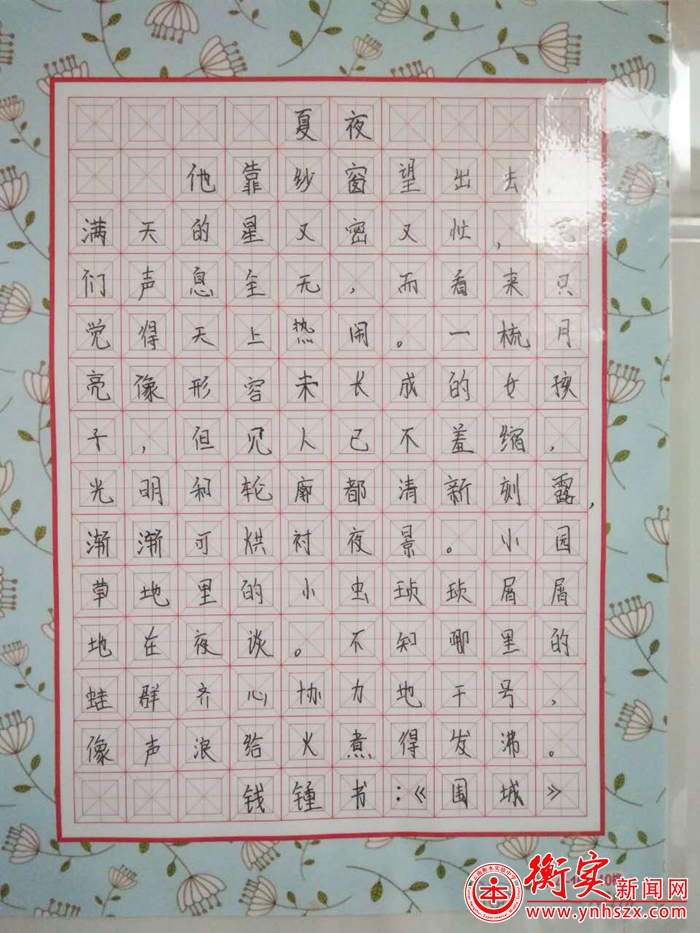 夏夜
他靠纱窗望出去
满天的星又密又忙，它
们声息全无，而看来只
觉得天上热闹。一梳月
亮像形容未长成的女孩
子，但见人已不羞缩，
光明和轮廓都清新刻露，
渐渐可烘衬夜景。小园
草地里的小虫琐琐屑屑
地在夜谈。不知哪里的
蛙群齐心协力地干号，
像声浪给火煮得发沸。
钱锺书：《围城》
衡实新闻网
www.ynhszx.com